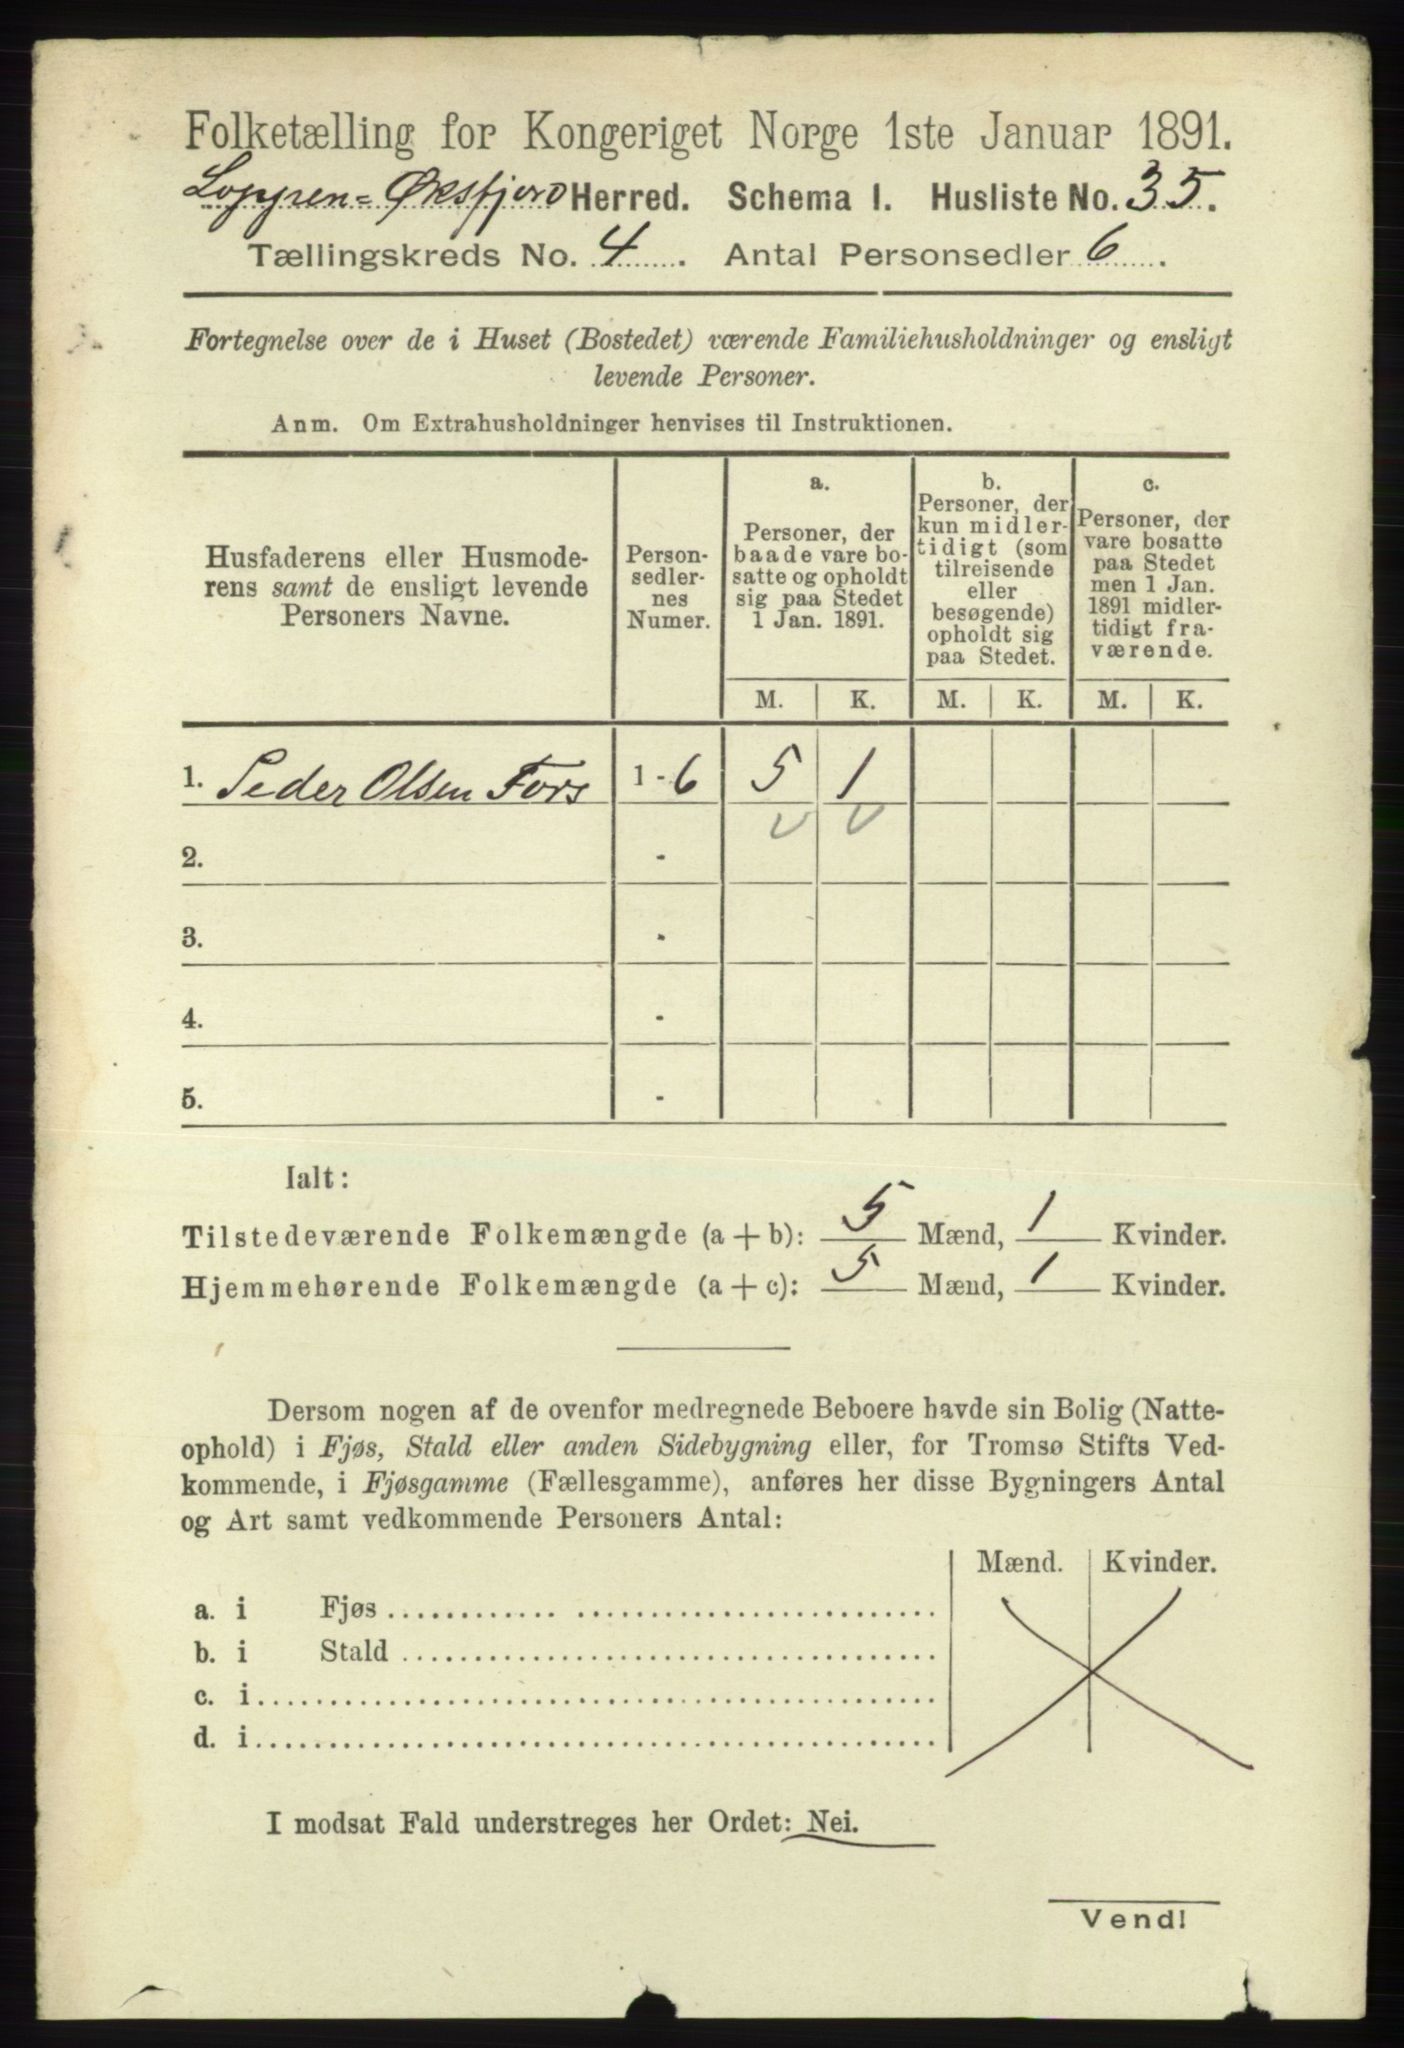 Folketælling for Kongeriget Norge 1ste Januar 1891.
Loppen=Øksfjord Herred. Schema I. Husliste No. 35.
Tællingskreds No. 4. Antal Personsedler 6.
Fortegnelse over de i Huset (Bostedet) værende Familiehusholdninger og ensligt
levende Personer.
Anm. Om Extrahusholdninger henvises til Instruktionen.
Husfaderens eller Husmode-
rens samt de ensligt levende
Personers Navne.
Person-
sedler-
nes
Numer.
a.
Personer, der
baade vare bo-
satte og opholdt
sig paa Stedet
1 Jan. 1891.
b.
Personer, der
kun midler-
tidigt (som
tilreisende
eller
besøgende)
opholdt sig
paa Stedet.
c.
Personer, der
vare bosatte
paa Stedet
men 1 Jan.
1891 midler-
tidigt fra-
værende.
M. K. M. K. M. K.
1. Peder Olsen Fors 1 - 6 5 1
2. -
3. -
4. -
5. -
Ialt:
Tilstedeværende Folkemængde (a + b): 5 Mænd, 1 Kvinder.
Hjemmehørende Folkemængde (a + c): 5 Mænd, 1 Kvinder.
Dersom nogen af de ovenfor medregnede Beboere havde sin Bolig (Natte-
ophold) i Fjøs, Stald eller anden Sidebygning eller, for Tromsø Stifts Ved-
kommende, i Fjøsgamme (Fællesgamme), anføres her disse Bygningers Antal
og Art samt vedkommende Personers Antal:
Mænd. Kvinder.
a. i Fjøs
b. i Stald
c. i
d. i
I modsat Fald understreges her Ordet: Nei.
Vend!